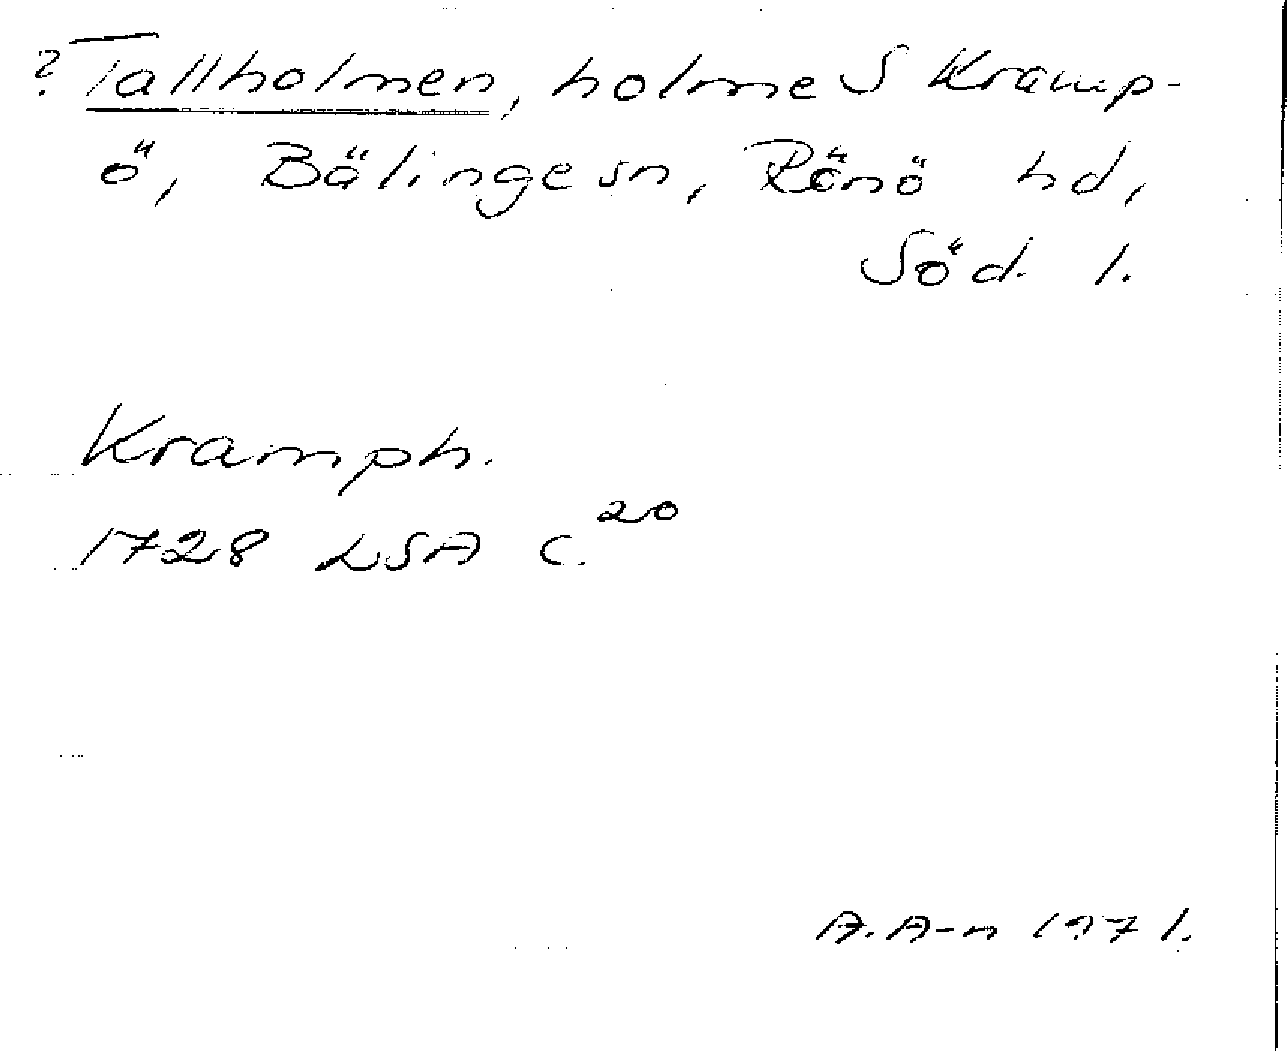 ? Tallholmen, holme S Kramp-
ö, Bälinge sn, Rönö hd,
Söd. l.
Kramph.
1728 LSA C.20
A. A-n 1971.